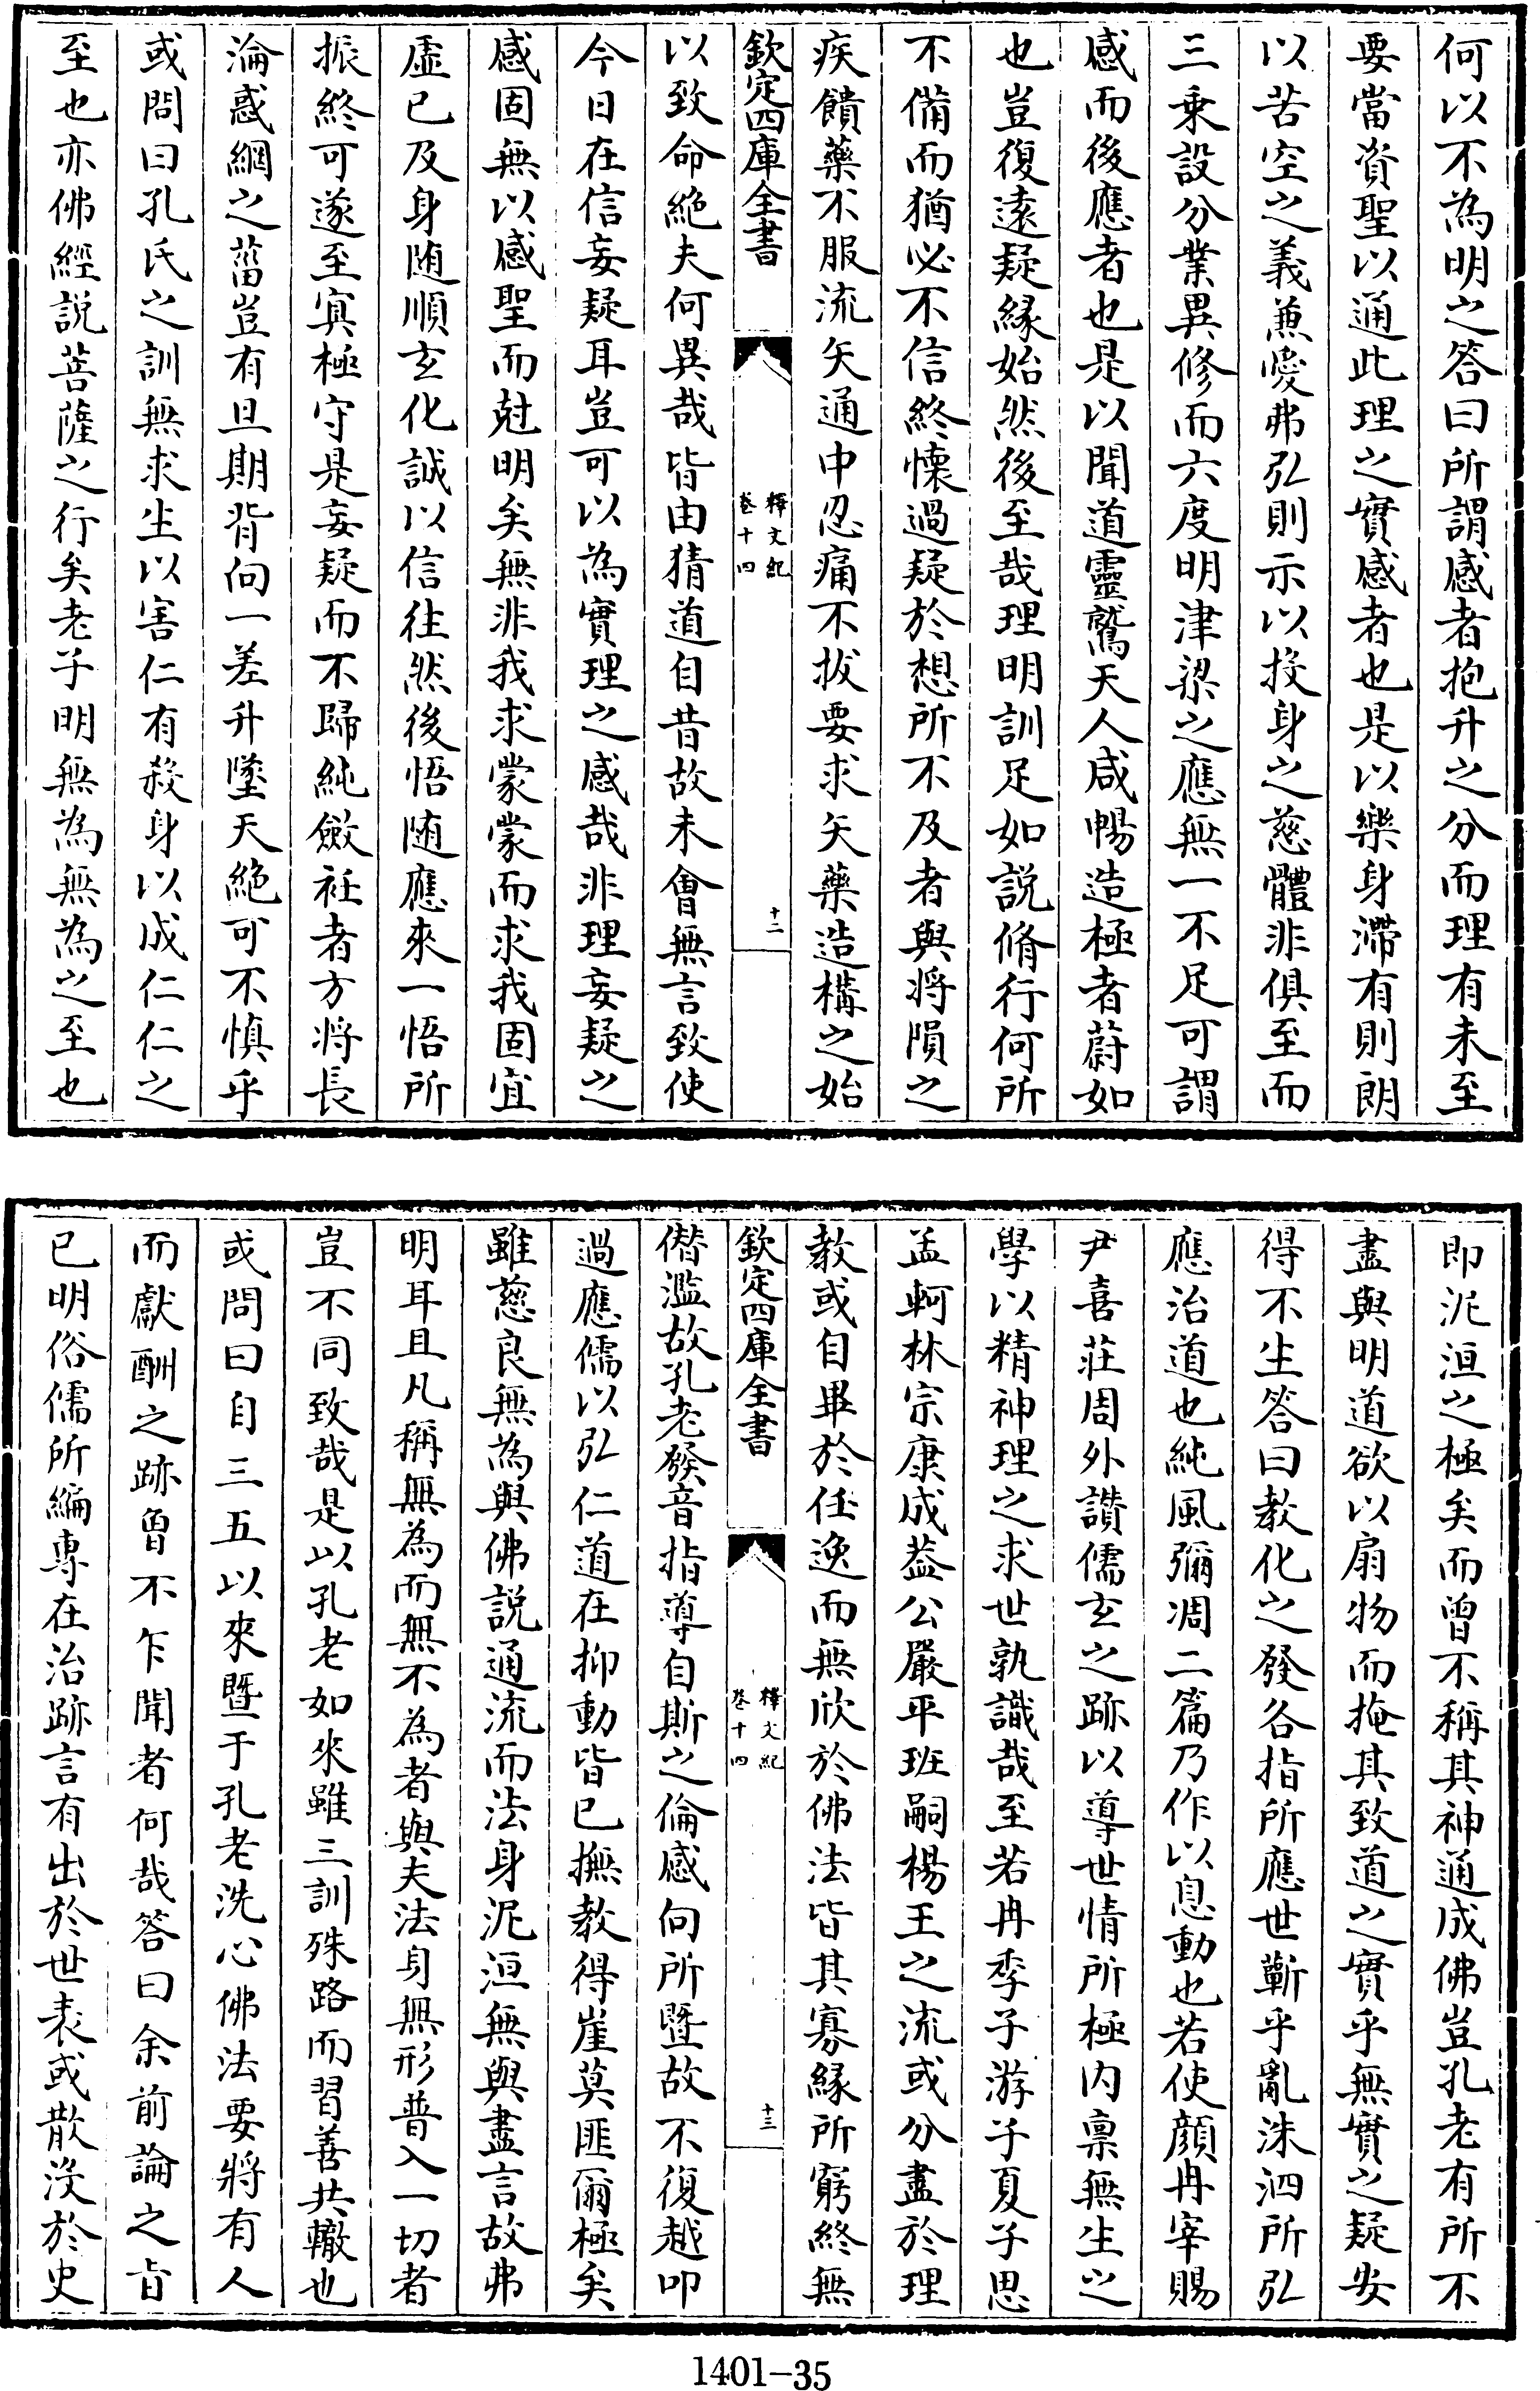 何以不為明之答曰所謂感者抱升之分而理有未至
要當資聖以通此理之實感者也是以樂身滯有則朗
以苦空之義兼愛弗弘則示以投身之慈體非俱至而
三乘設分業異修而六度明津梁之應無一不足可謂
感而後應者也是以聞道靈鷲天人咸暢造極者蔚如
也豈復遠疑緣始然後至哉理明訓足如說脩行何所
不備而猶必不信終懷過疑於想所不及者與將隕之
疾饋藥不服流矢通中忍痛不拔要求矢藥造構之始
欽定四庫全書
釋文紀
卷十四
十二
以致命絶夫何異哉皆由猜道自昔故未會無言致使
今日在信妄疑耳豈可以為實理之感哉非理妄疑之
感固無以感聖而尅明矣無非我求蒙蒙而求我固宜
虛已及身随順玄化誠以信往然後悟随應來一悟所
振終可遂至冥極守是妄疑而不歸純斂衽者方將長
淪惑網之菑豈有旦期背向一差升墜天絶可不慎乎
或問曰孔氏之訓無求生以害仁有殺身以成仁仁之
至也亦佛經說菩薩之行矣老子明無為無為之至也
即泥洹之極矣而曽不稱其神通成佛豈孔老有所不
盡與明道欲以扇物而掩其致道之實乎無實之疑安
得不生答曰教化之發各指所應世蘄乎亂洙泗所弘
應治道也純風彌凋二篇乃作以息動也若使顔冉宰賜
尹喜莊周外讚儒玄之跡以導世情所極内禀無生之
學以精神理之求世孰識哉至若冉季子游子夏子思
孟軻林宗康成葢公嚴平班嗣楊王之流或分盡於理
教或自畢於任逸而無欣於佛法皆其寡緣所窮終無
欽定四庫全書
釋文紀
卷十四
十三
僣濫故孔老發音指導自斯之倫感向所暨故不復越叩
過應儒以弘仁道在抑動皆已撫教得崖莫匪爾極矣
雖慈良無為與佛說通流而法身泥洹無與盡言故弗
明耳且凡稱無為而無不為者與夫法身無形普入一切者
豈不同致哉是以孔老如來雖三訓殊路而習善共轍也
或問曰自三五以來暨于孔老洗心佛法要將有人
而獻酬之跡曽不乍聞者何哉答曰余前論之旨
已明俗儒所編專在治跡言有出於世表或散沒於史
1401-35